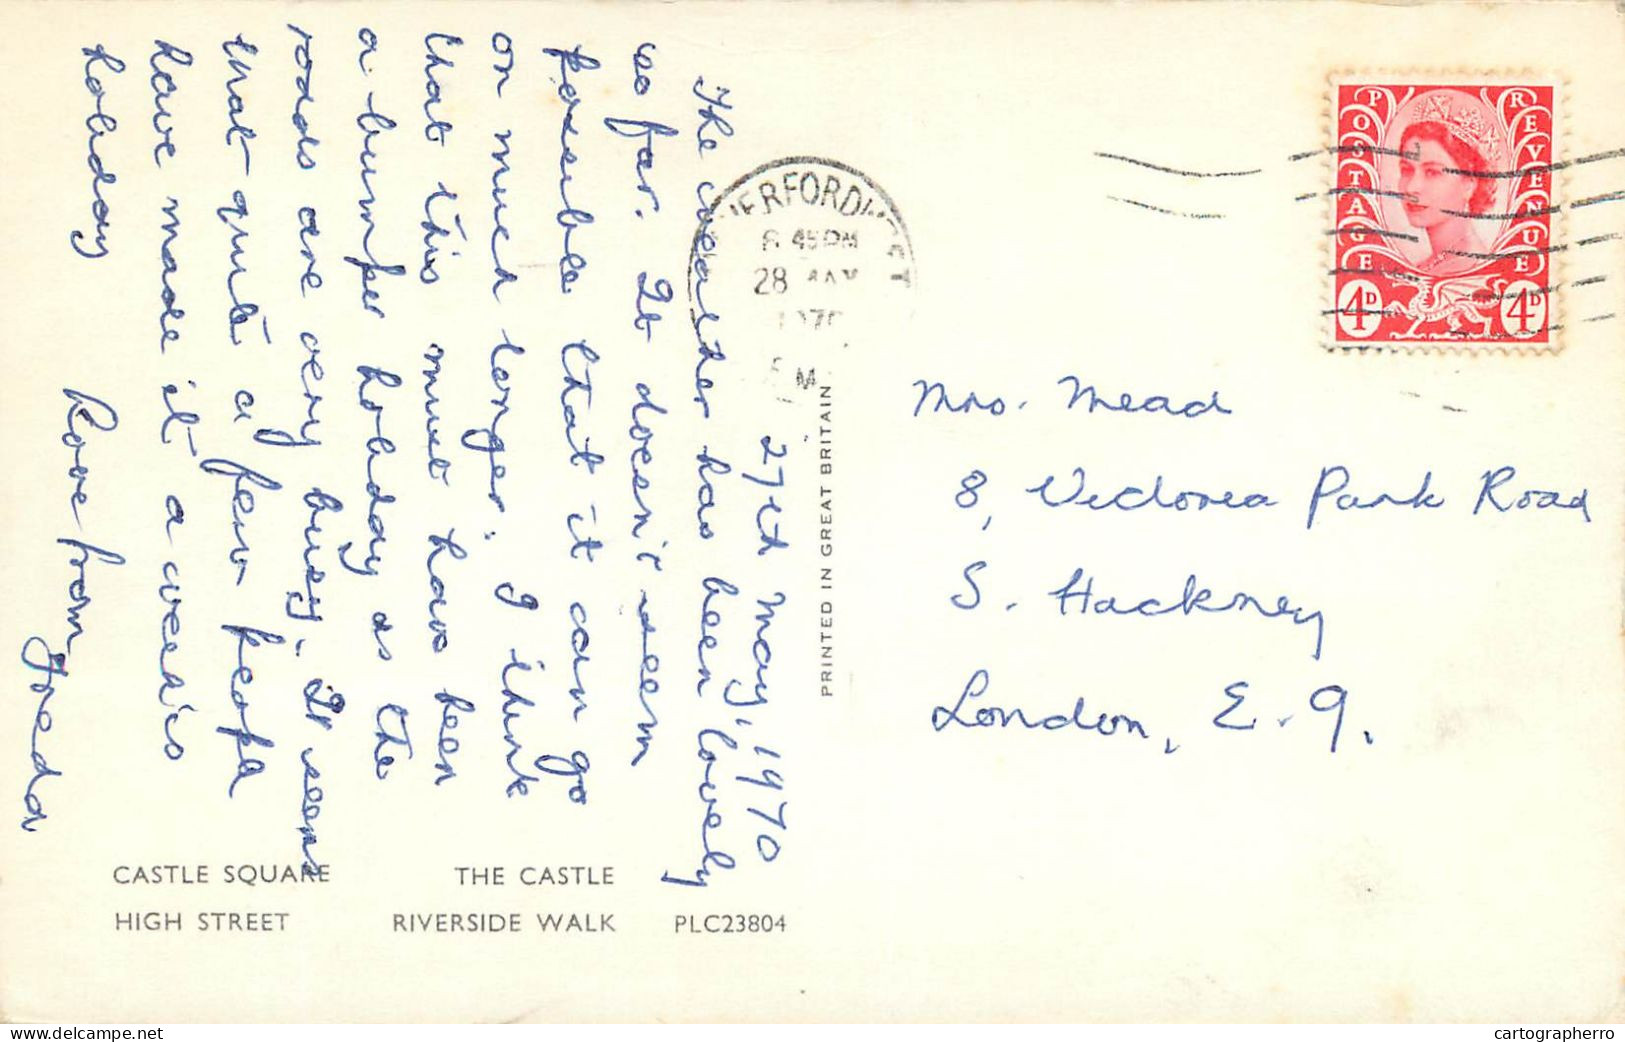 27th May, 1970
The weather has been lovely
so far. It doesn't seem
possible that it can go
on much longer. I think
that this must have been
a bumper holiday as the
roads are very busy. It seems
that quite a few people
have made it a week's
holiday
Love from
Freda
CASTLE SQUARE THE CASTLE
HIGH STREET RIVERSIDE WALK PLC23804
PRINTED IN GREAT BRITAIN
45 PM
28 MAY
1970
POSTAGE REVENUE
4D 4D
Mrs. Mead
8, Victoria Park Road
S. Hackney
London, E. 9.
cartographerro